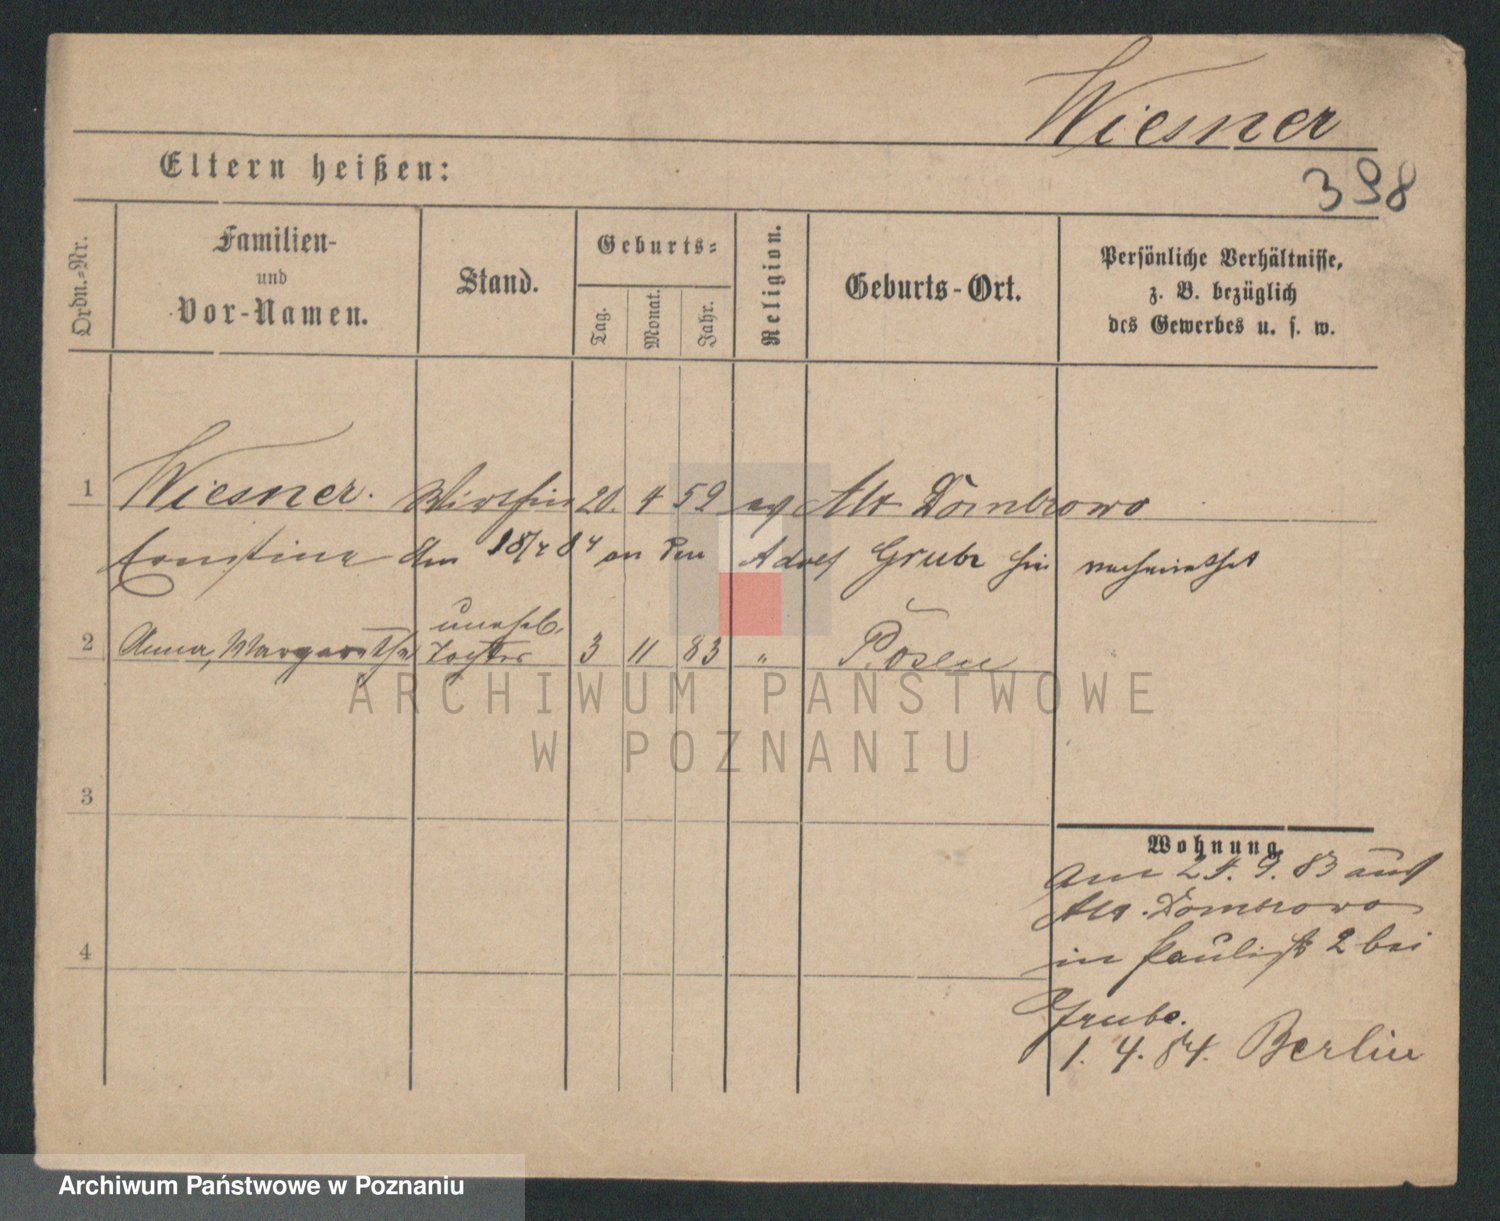 Wiesner
398
Eltern heißen:
Ordn.-Nr.
Familien-
und
Vor-Namen.
Stand.
Geburts-
Tag.
Monat.
Jahr.
Religion.
Geburts-Ort.
Persönliche Verhältnisse,
z. B. bezüglich
des Gewerbes u. s. w.
1 Wiesner. Wirthin 20. 4 59 ev Alt Dombrowo
Ernestine Am 18/4 84 an den Adolf Grube hier verheirathet
unehel.
2 Anna, Margaretha Tochter 3 11 83 " Posen
ARCHIWUM PAŃSTWOWE
W POZNANIU
3
Wohnung.
Am 24. 9. 83 aus
Alt. Dombrowo
4
in Paulist 2 bei
Grube.
1. 4. 84. Berlin
Archiwum Państwowe w Poznaniu